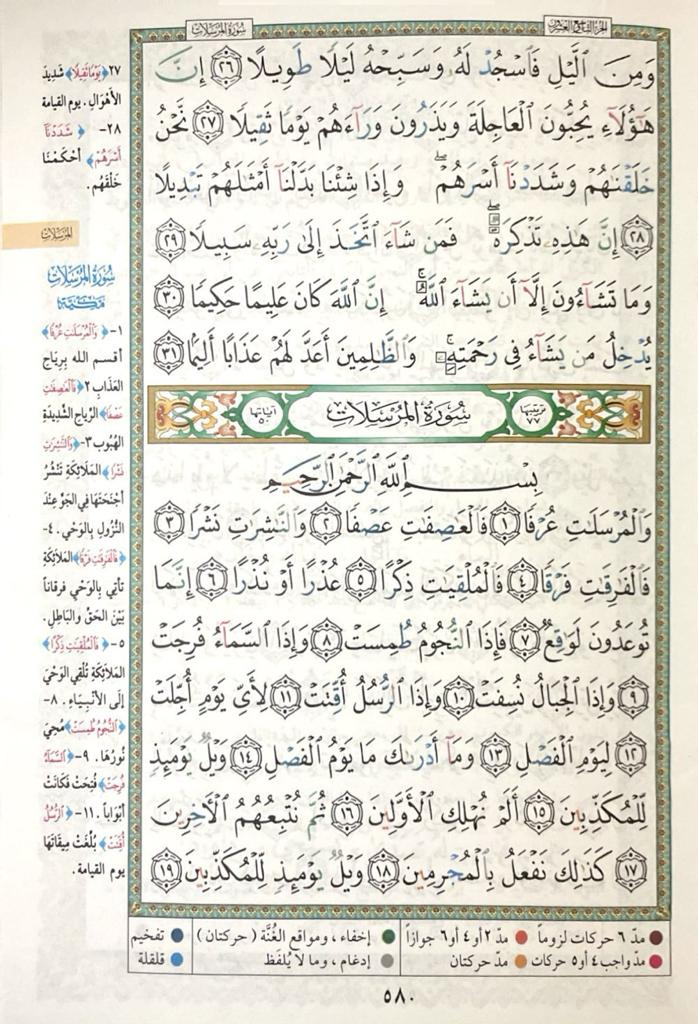 الجزء التاسع والعشرون
سورة المرسلات
وَمِنَ ٱلَّيۡلِ فَٱسۡجُدۡ لَهُۥ وَسَبِّحۡهُ لَيۡلٗا طَوِيلًا ٢٦ إِنَّ
هَٰٓؤُلَآءِ يُحِبُّونَ ٱلۡعَاجِلَةَ وَيَذَرُونَ وَرَآءَهُمۡ يَوۡمٗا ثَقِيلٗا ٢٧ نَّحۡنُ
خَلَقۡنَٰهُمۡ وَشَدَدۡنَآ أَسۡرَهُمۡۖ وَإِذَا شِئۡنَا بَدَّلۡنَآ أَمۡثَٰلَهُمۡ تَبۡدِيلًا
٢٨ إِنَّ هَٰذِهِۦ تَذۡكِرَةٞۖ فَمَن شَآءَ ٱتَّخَذَ إِلَىٰ رَبِّهِۦ سَبِيلٗا ٢٩
وَمَا تَشَآءُونَ إِلَّآ أَن يَشَآءَ ٱللَّهُۚ إِنَّ ٱللَّهَ كَانَ عَلِيمًا حَكِيمٗا ٣٠
يُدۡخِلُ مَن يَشَآءُ فِي رَحۡمَتِهِۦۚ وَٱلظَّٰلِمِينَ أَعَدَّ لَهُمۡ عَذَابًا أَلِيمَۢا ٣١
ترتيبها ٧٧ سُورَةُ المُرْسَلَاتِ آياتها ٥٠
بِسۡمِ ٱللَّهِ ٱلرَّحۡمَٰنِ ٱلرَّحِيمِ
وَٱلۡمُرۡسَلَٰتِ عُرۡفٗا ١ فَٱلۡعَٰصِفَٰتِ عَصۡفٗا ٢ وَٱلنَّٰشِرَٰتِ نَشۡرٗا ٣
فَٱلۡفَٰرِقَٰتِ فَرۡقٗا ٤ فَٱلۡمُلۡقِيَٰتِ ذِكۡرًا ٥ عُذۡرًا أَوۡ نُذۡرًا ٦ إِنَّمَا
تُوعَدُونَ لَوَٰقِعٞ ٧ فَإِذَا ٱلنُّجُومُ طُمِسَتۡ ٨ وَإِذَا ٱلسَّمَآءُ فُرِجَتۡ
٩ وَإِذَا ٱلۡجِبَالُ نُسِفَتۡ ١٠ وَإِذَا ٱلرُّسُلُ أُقِّتَتۡ ١١ لِأَيِّ يَوۡمٍ أُجِّلَتۡ
١٢ لِيَوۡمِ ٱلۡفَصۡلِ ١٣ وَمَآ أَدۡرَىٰكَ مَا يَوۡمُ ٱلۡفَصۡلِ ١٤ وَيۡلٞ يَوۡمَئِذٖ
لِّلۡمُكَذِّبِينَ ١٥ أَلَمۡ نُهۡلِكِ ٱلۡأَوَّلِينَ ١٦ ثُمَّ نُتۡبِعُهُمُ ٱلۡأٓخِرِينَ
١٧ كَذَٰلِكَ نَفۡعَلُ بِٱلۡمُجۡرِمِينَ ١٨ وَيۡلٞ يَوۡمَئِذٖ لِّلۡمُكَذِّبِينَ ١٩
٢٧ ﴿يَوْمًا ثَقِيلًا﴾ شَدِيدَ
الأَهْوَالِ. يوم القيامة
٢٨- ﴿شَدَدْنَا
أَسْرَهُمْ﴾ أَحْكَمْنَا
خَلْقَهُم.
المُرسَلات
سُورَةُ المُرْسَلَاتِ
مَكِّيَّة
١- ﴿وَالْمُرْسَلَٰتِ عُرْفًا﴾
أقسم الله بِرِيَاحِ
العَذَابِ ٢﴿فَالْعَٰصِفَٰتِ
عَصْفًا﴾ الرِّيَاحِ الشَّدِيدَةِ
الهُبُوبِ ٣- ﴿وَالنَّٰشِرَٰتِ
نَشْرًا﴾ المَلَائِكَةِ تَنْشُرُ
أجْنِحَتَهَا فِي الجَوِّ عِنْدَ
النُّزُولِ بِالوَحْيِ. ٤-
﴿فَالْفَٰرِقَٰتِ فَرْقًا﴾ المَلائِكَةِ
تأتي بِالوَحْي فرقاناً
بَيْنَ الحَقِّ وَالبَاطِلِ.
٥- ﴿فَالْمُلْقِيَٰتِ ذِكْرًا﴾
المَلائِكَةِ تُلْقِي الوَحْيَ
إلى الأنْبِيَاءِ. ٨-
﴿النُّجُومُ طُمِسَتْ﴾ مُحِيَ
نُورُهَا. ٩- ﴿السَّمَآءُ
فُرِجَتْ﴾ فُتِحَتْ فَكَانَتْ
أَبْوَاباً. ١١- ﴿الرُّسُلُ
أُقِّتَتْ﴾ بُلِّغَتْ مِيقَاتَهَا
يوم القيامة.
مدّ ٦ حركات لزوماً مدّ ٢ أو ٤ أو ٦ جوازاً إخفاء، ومواقع الغُنَّة (حركتان) تفخيم
مدّ واجب ٤ أو ٥ حركات مدّ حركتان إدغام، وما لا يُلفَظ قلقلة
٥٨٠